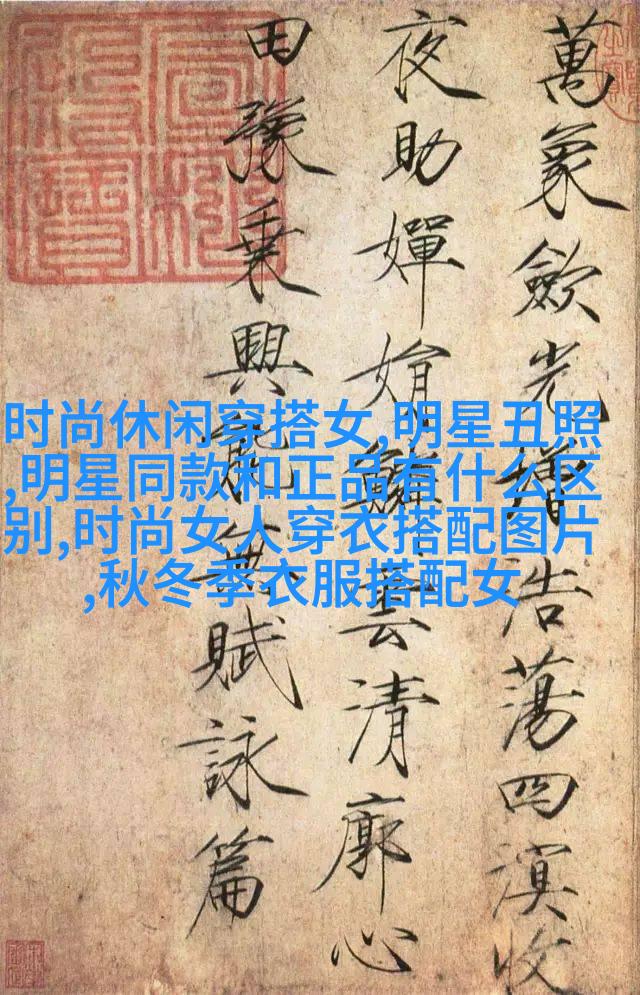 萬象歛光增浩蕩四溟收
夜助嬋娟鱗雲清廓心
田豫乗興能無賦詠篇
时尚休闲穿搭女,明星丑照
,明星同款和正品有什么区
别,时尚女人穿衣搭配图片
,秋冬季衣服搭配女